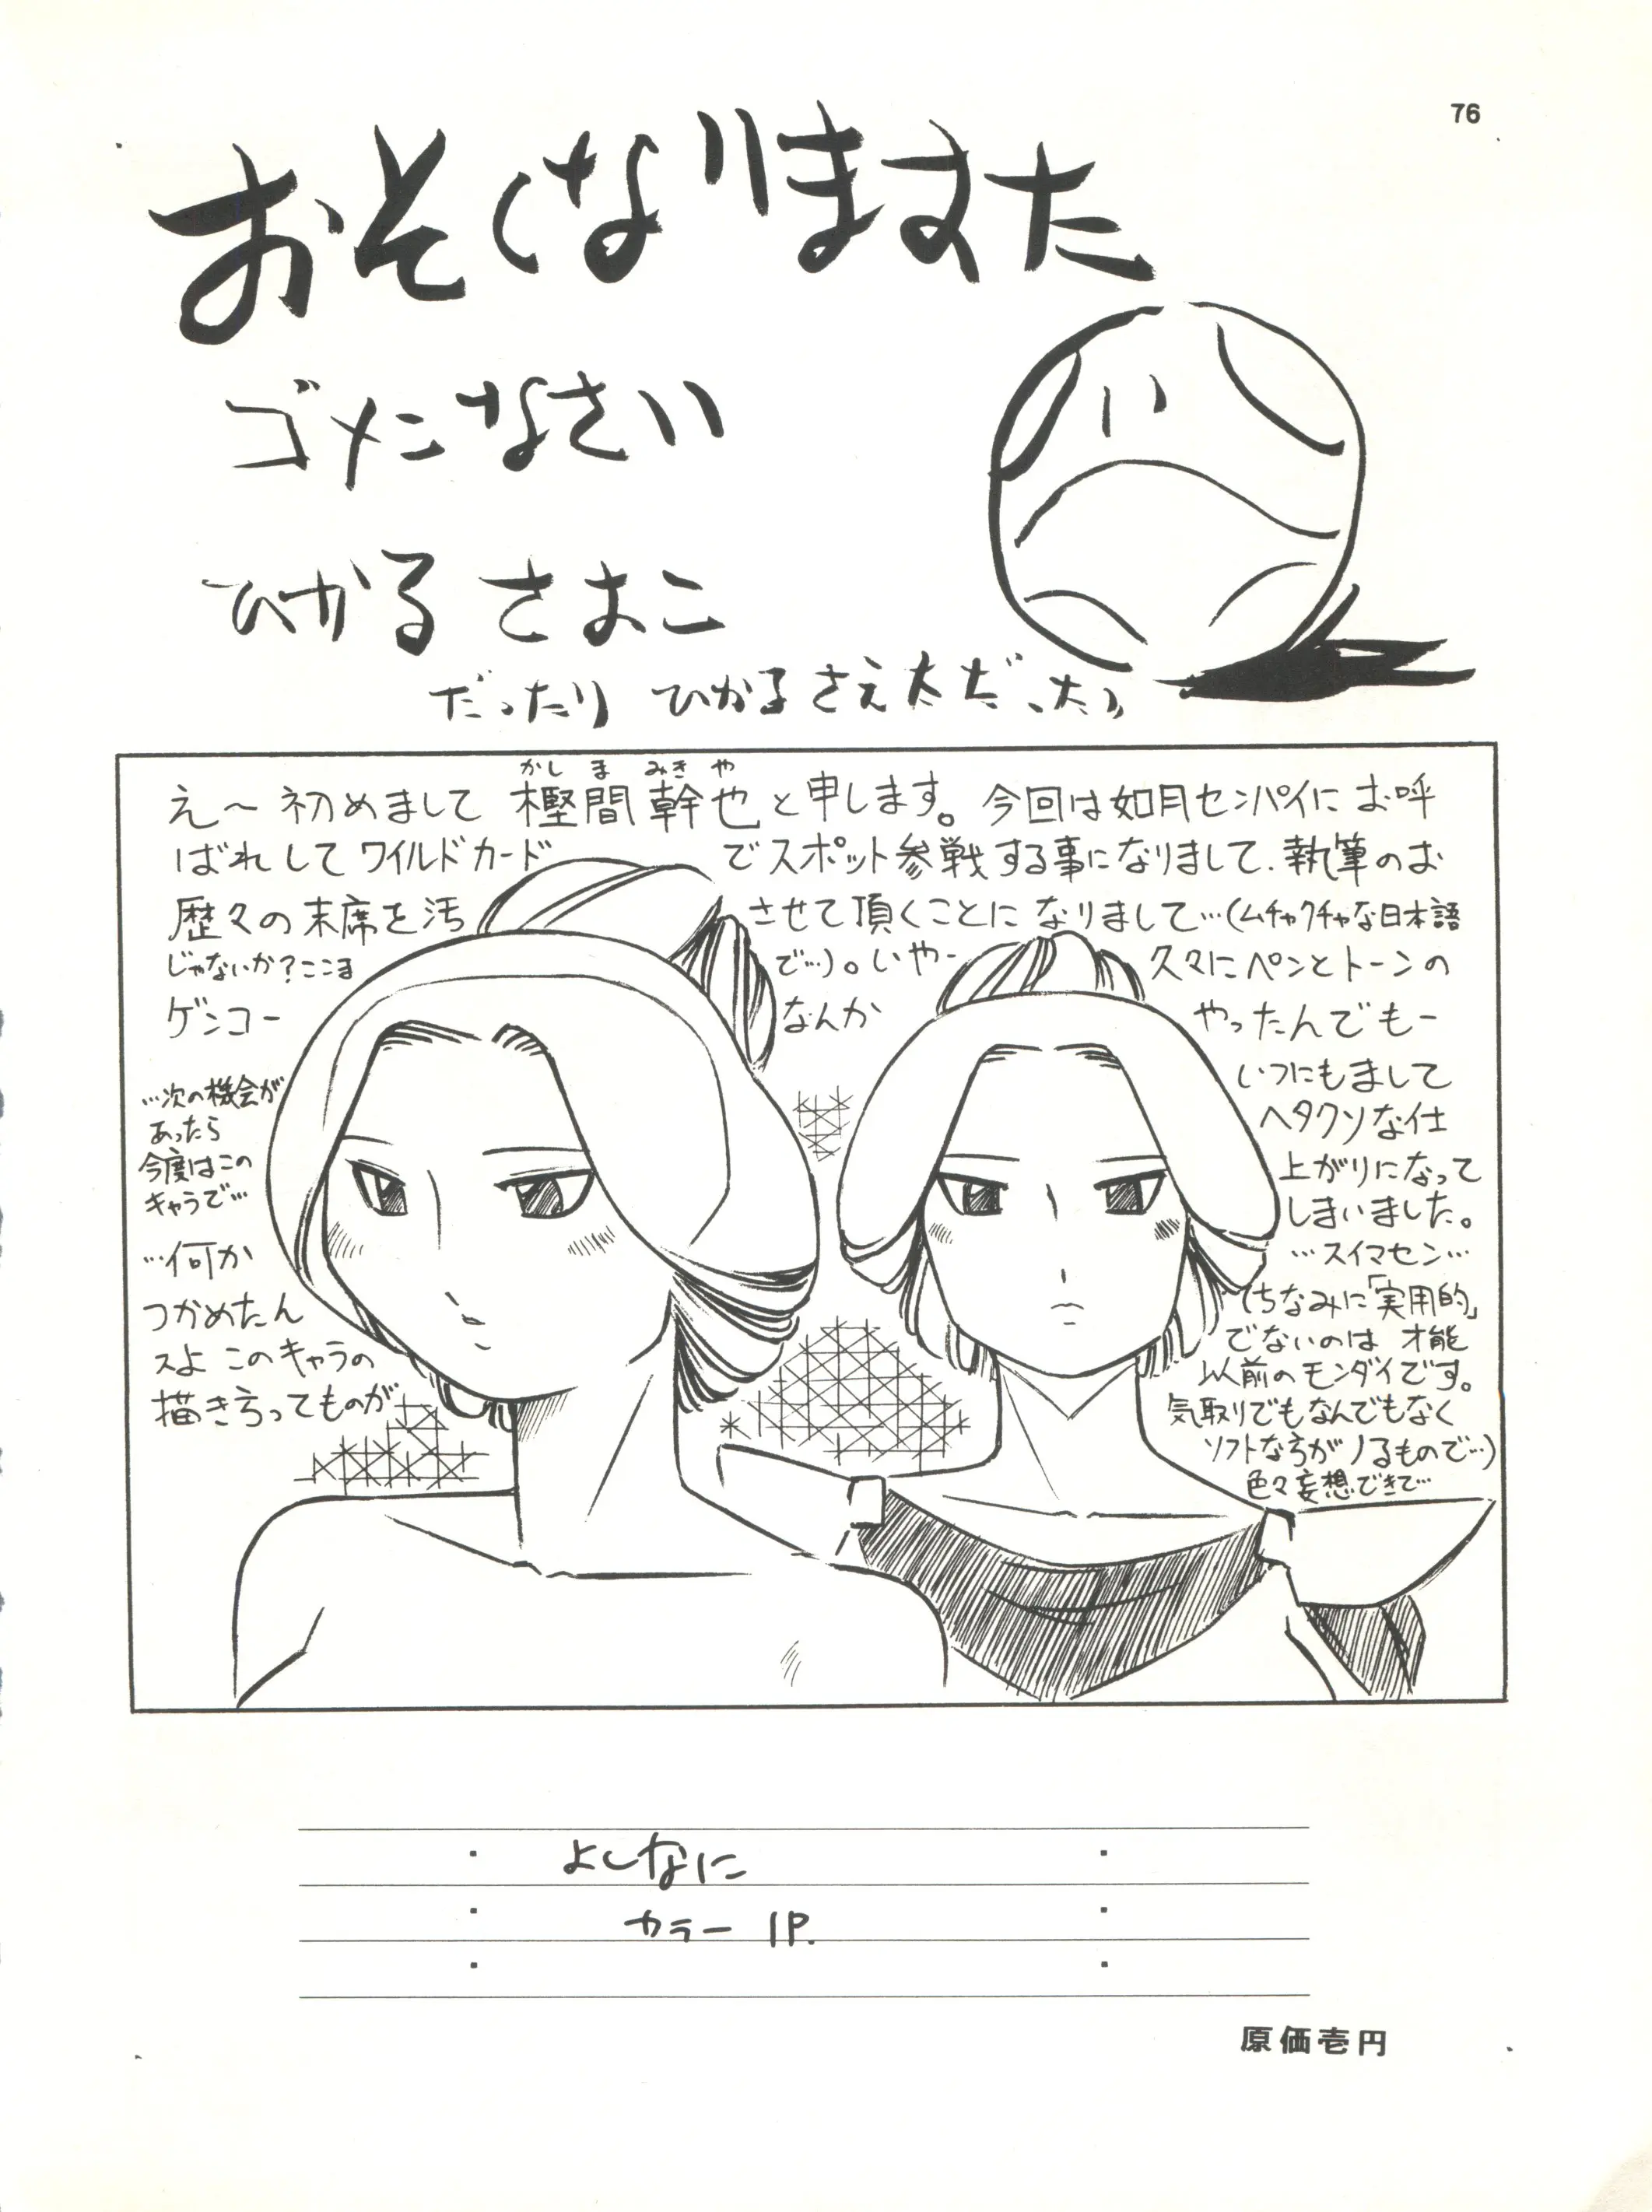 76
おそくなりますた
ゴメンなさい
ひかる さおこ
だったり ひかるさえ太だった〃
かしま みきや
え〜初めまして 樫間幹也と申します。今回は如月センパイにお呼
ばれしてワイルドカードでスポット参戦する事になりまして、執筆のお
歴々の末席を汚させて頂くことになりまして…(ムチャクチャな日本語
じゃないか?ここまで…)。いやー久々にペンとトーンの
ゲンコーなんかやったんでもー
いつにもまして
ヘタクソな仕
上がりになって
しまいました。
…スイマセン…
(ちなみに「実用的」
でないのは 才能
以前のモンダイです。
気取りでもなんでもなく
ソフトな方がノるもので…)
色々妄想できて…
…次の機会が
あったら
今度はこの
キャラで…
…何か
つかめたん
スよ このキャラの
描き方ってものが
よしなに
カラー 1P.
原価壱円